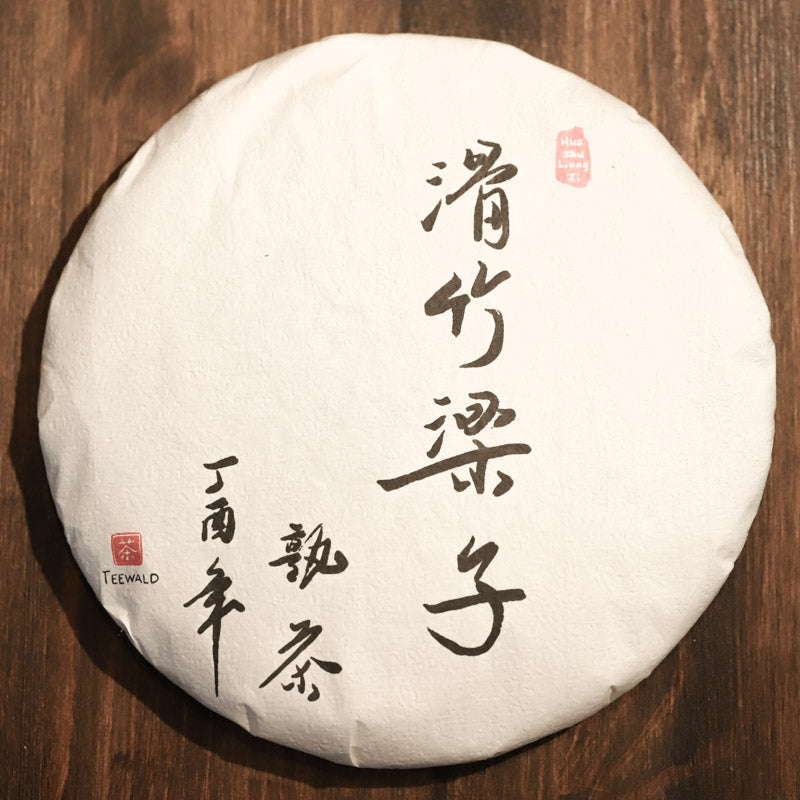 Hua
Zhu
Liang
Zi
滑竹梁子
孰茶
丁酉年
茶
TEEWALD